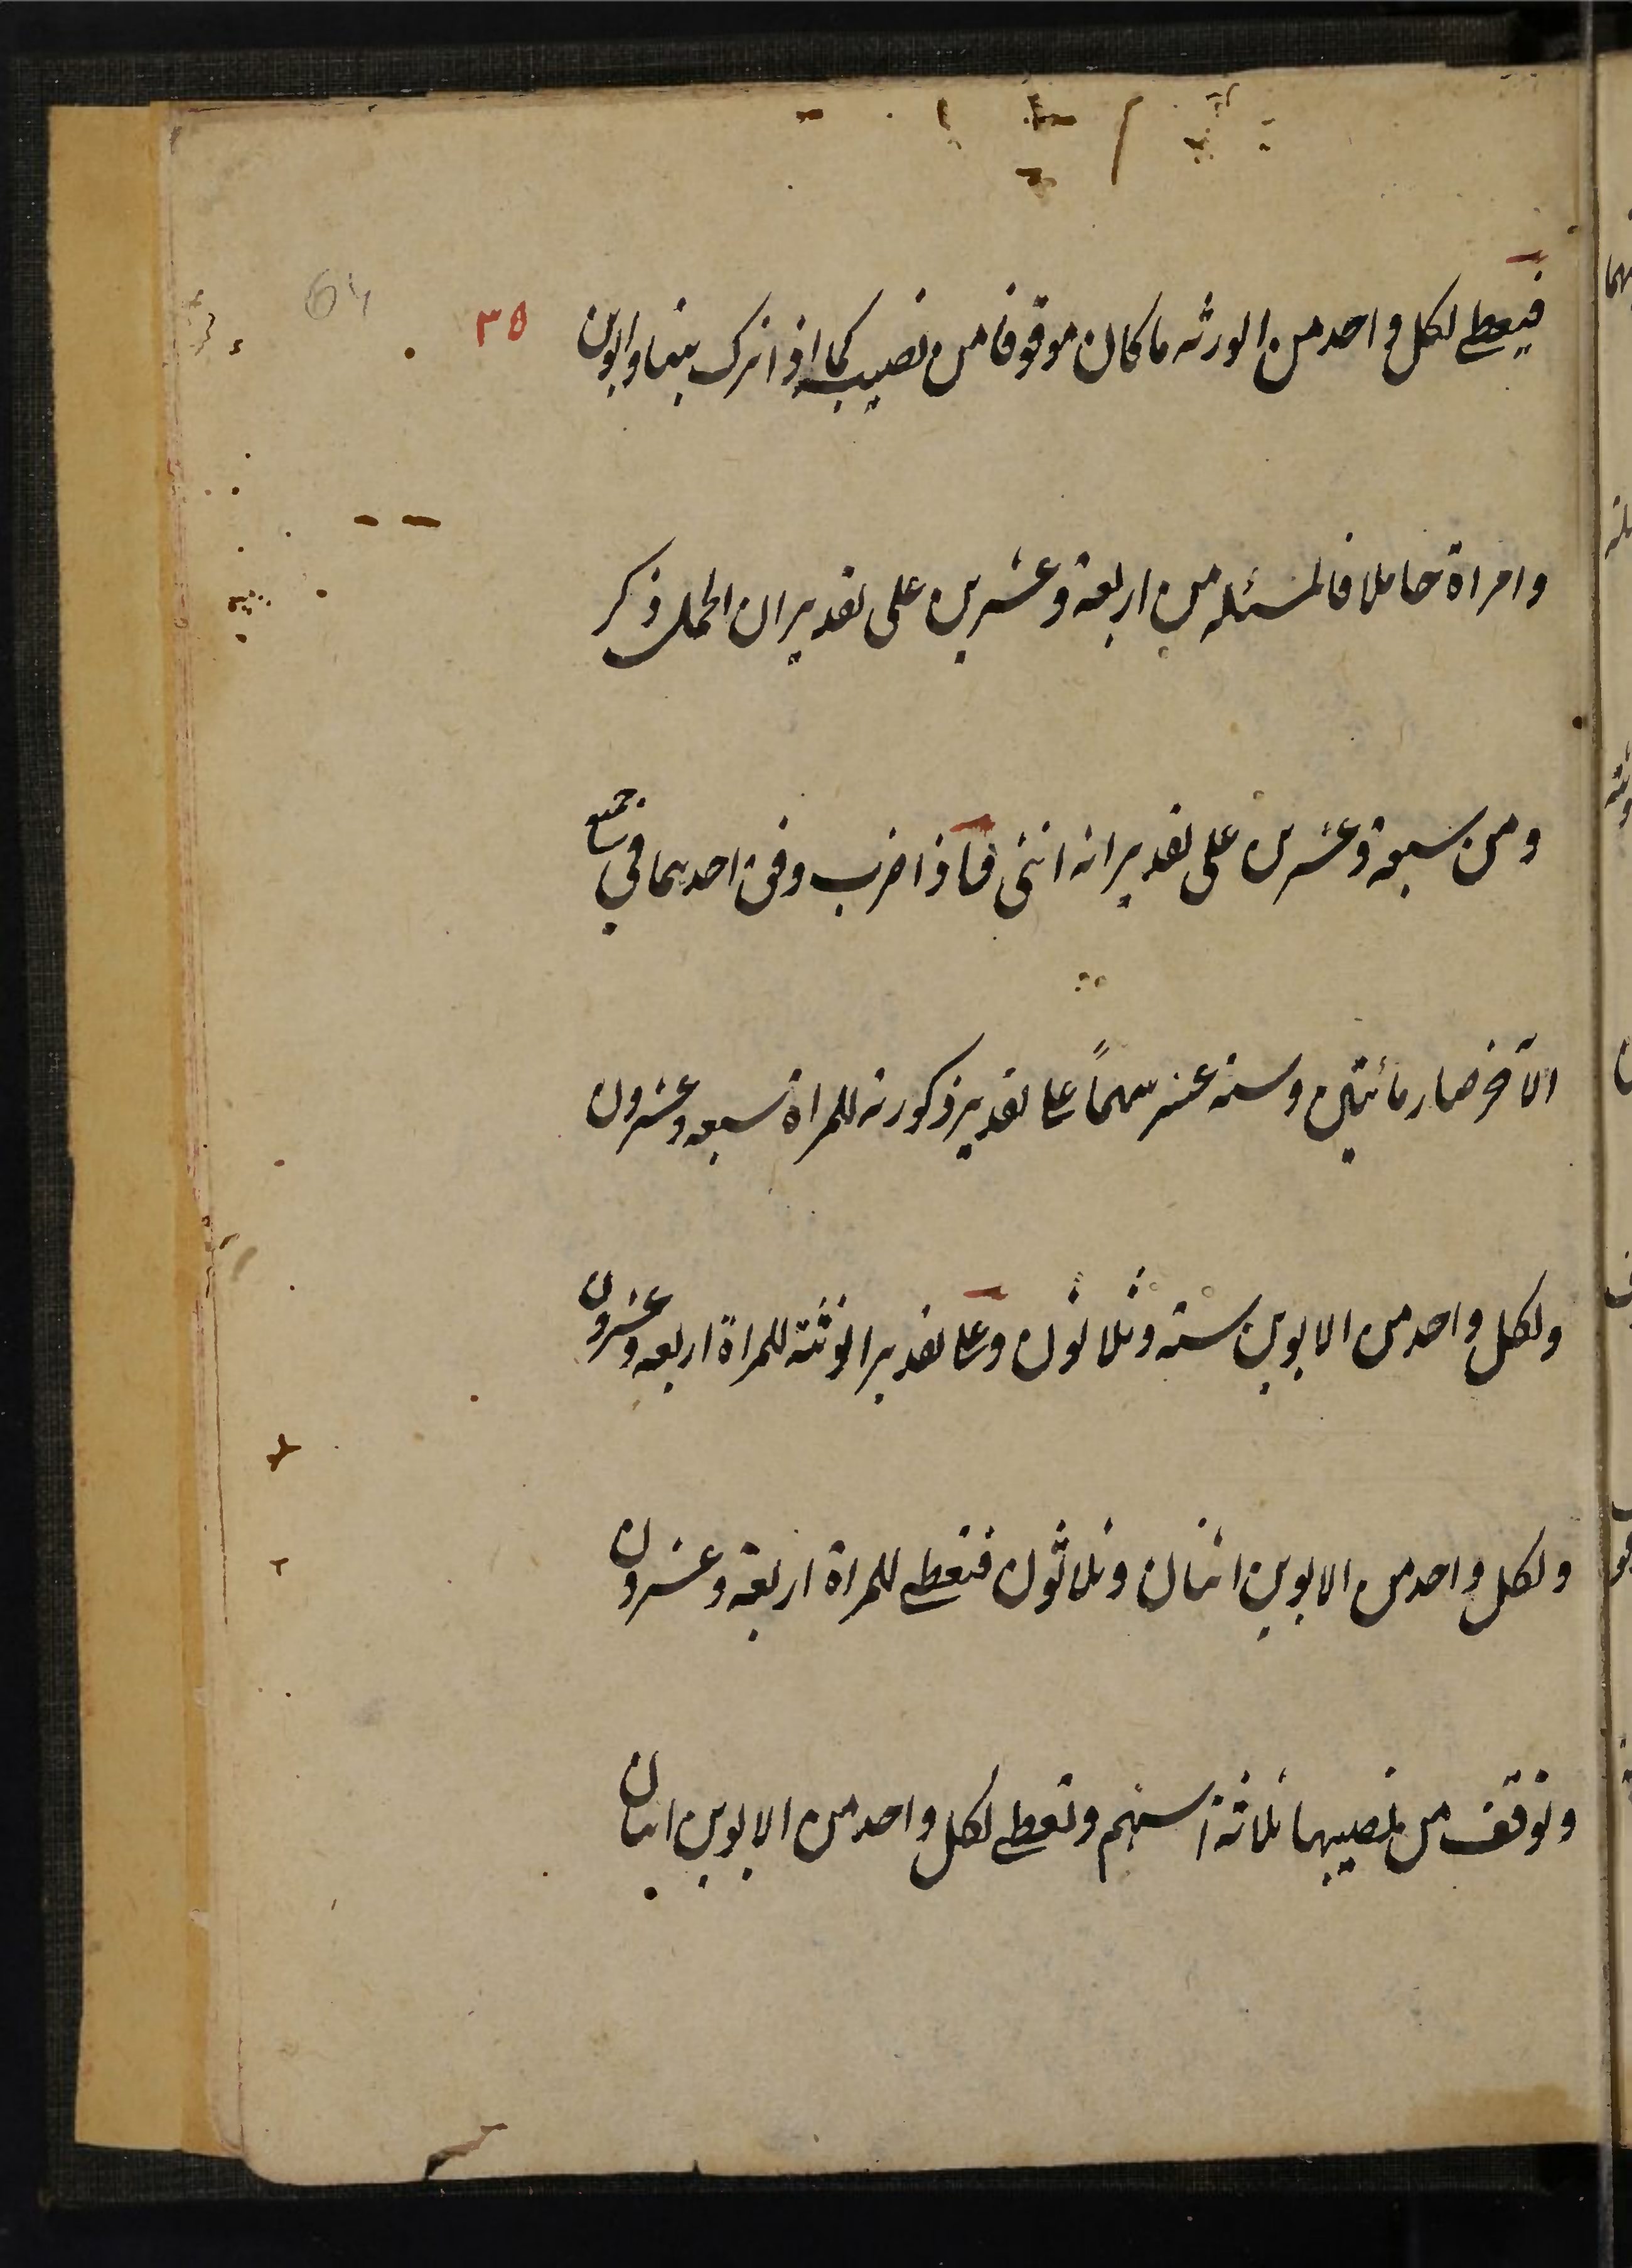 64
٣٥
فيعطى لكل واحد من الورثه ما كان موقوفا من نصيبه كما اذا ترك بنتا وابوين
وامراة حاملا فالمسئله من اربعة وعشرين على تقدير ان الحمل ذكر
ومن سبعة وعشرين على تقدير انه انثى فاذا ضرب وفق احديهما في جميع
الآخر صار مائتين وستة عشر سهماً على تقدير ذكورته للمراة سبعه وعشرون
ولكل واحد من الابوين ستة وثلاثون وعلى تقدير انوثته للمراة اربعه وعشرون
ولكل واحد من الابوين اثنان وثلاثون فتعطى للمراة اربعة وعشرون
وتوقف من نصيبها ثلاثة اسهم وتعطى لكل واحد من الابوين اثنان